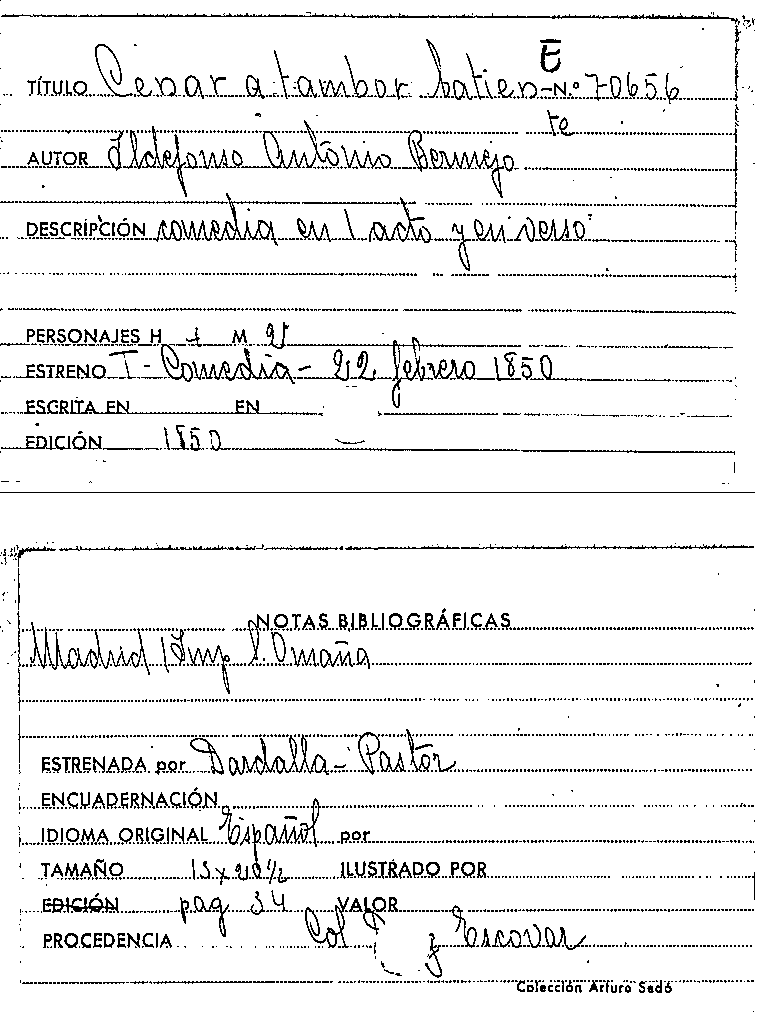 E
TÍTULO Cenar a tambor batien- N.º 70656
te
AUTOR Ildefonso Antonio Bermejo
DESCRIPCIÓN comedia en 1 acto y en verso
PERSONAJES H M
ESTRENO T - Comedia - 22 febrero 1850
ESCRITA EN EN
EDICIÓN 1850 —
NOTAS BIBLIOGRÁFICAS
Madrid / Imp S. Omaña
ESTRENADA por Dardalla - Pastor
ENCUADERNACIÓN
IDIOMA ORIGINAL Español por
TAMAÑO 15 x 20 ½ ILUSTRADO POR
EDICIÓN pag 34 VALOR
PROCEDENCIA Col y Escovar
Colección Arturo Sedó